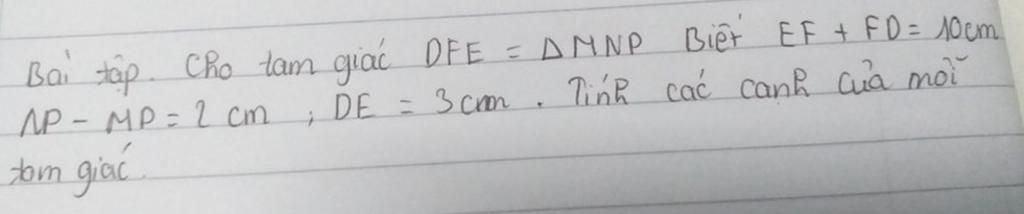 Bài tập. Cho tam giác DFE = ΔMNP Biết EF + FD = 10cm
NP - MP = 2 cm ; DE = 3cm. Tính các cạnh của mỗi
tam giác.